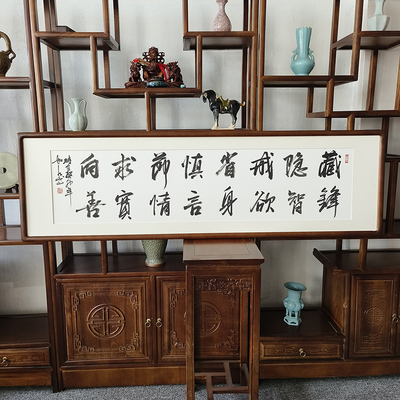 藏锋
隐智
戒欲
省身
慎言
节情
求实
向善